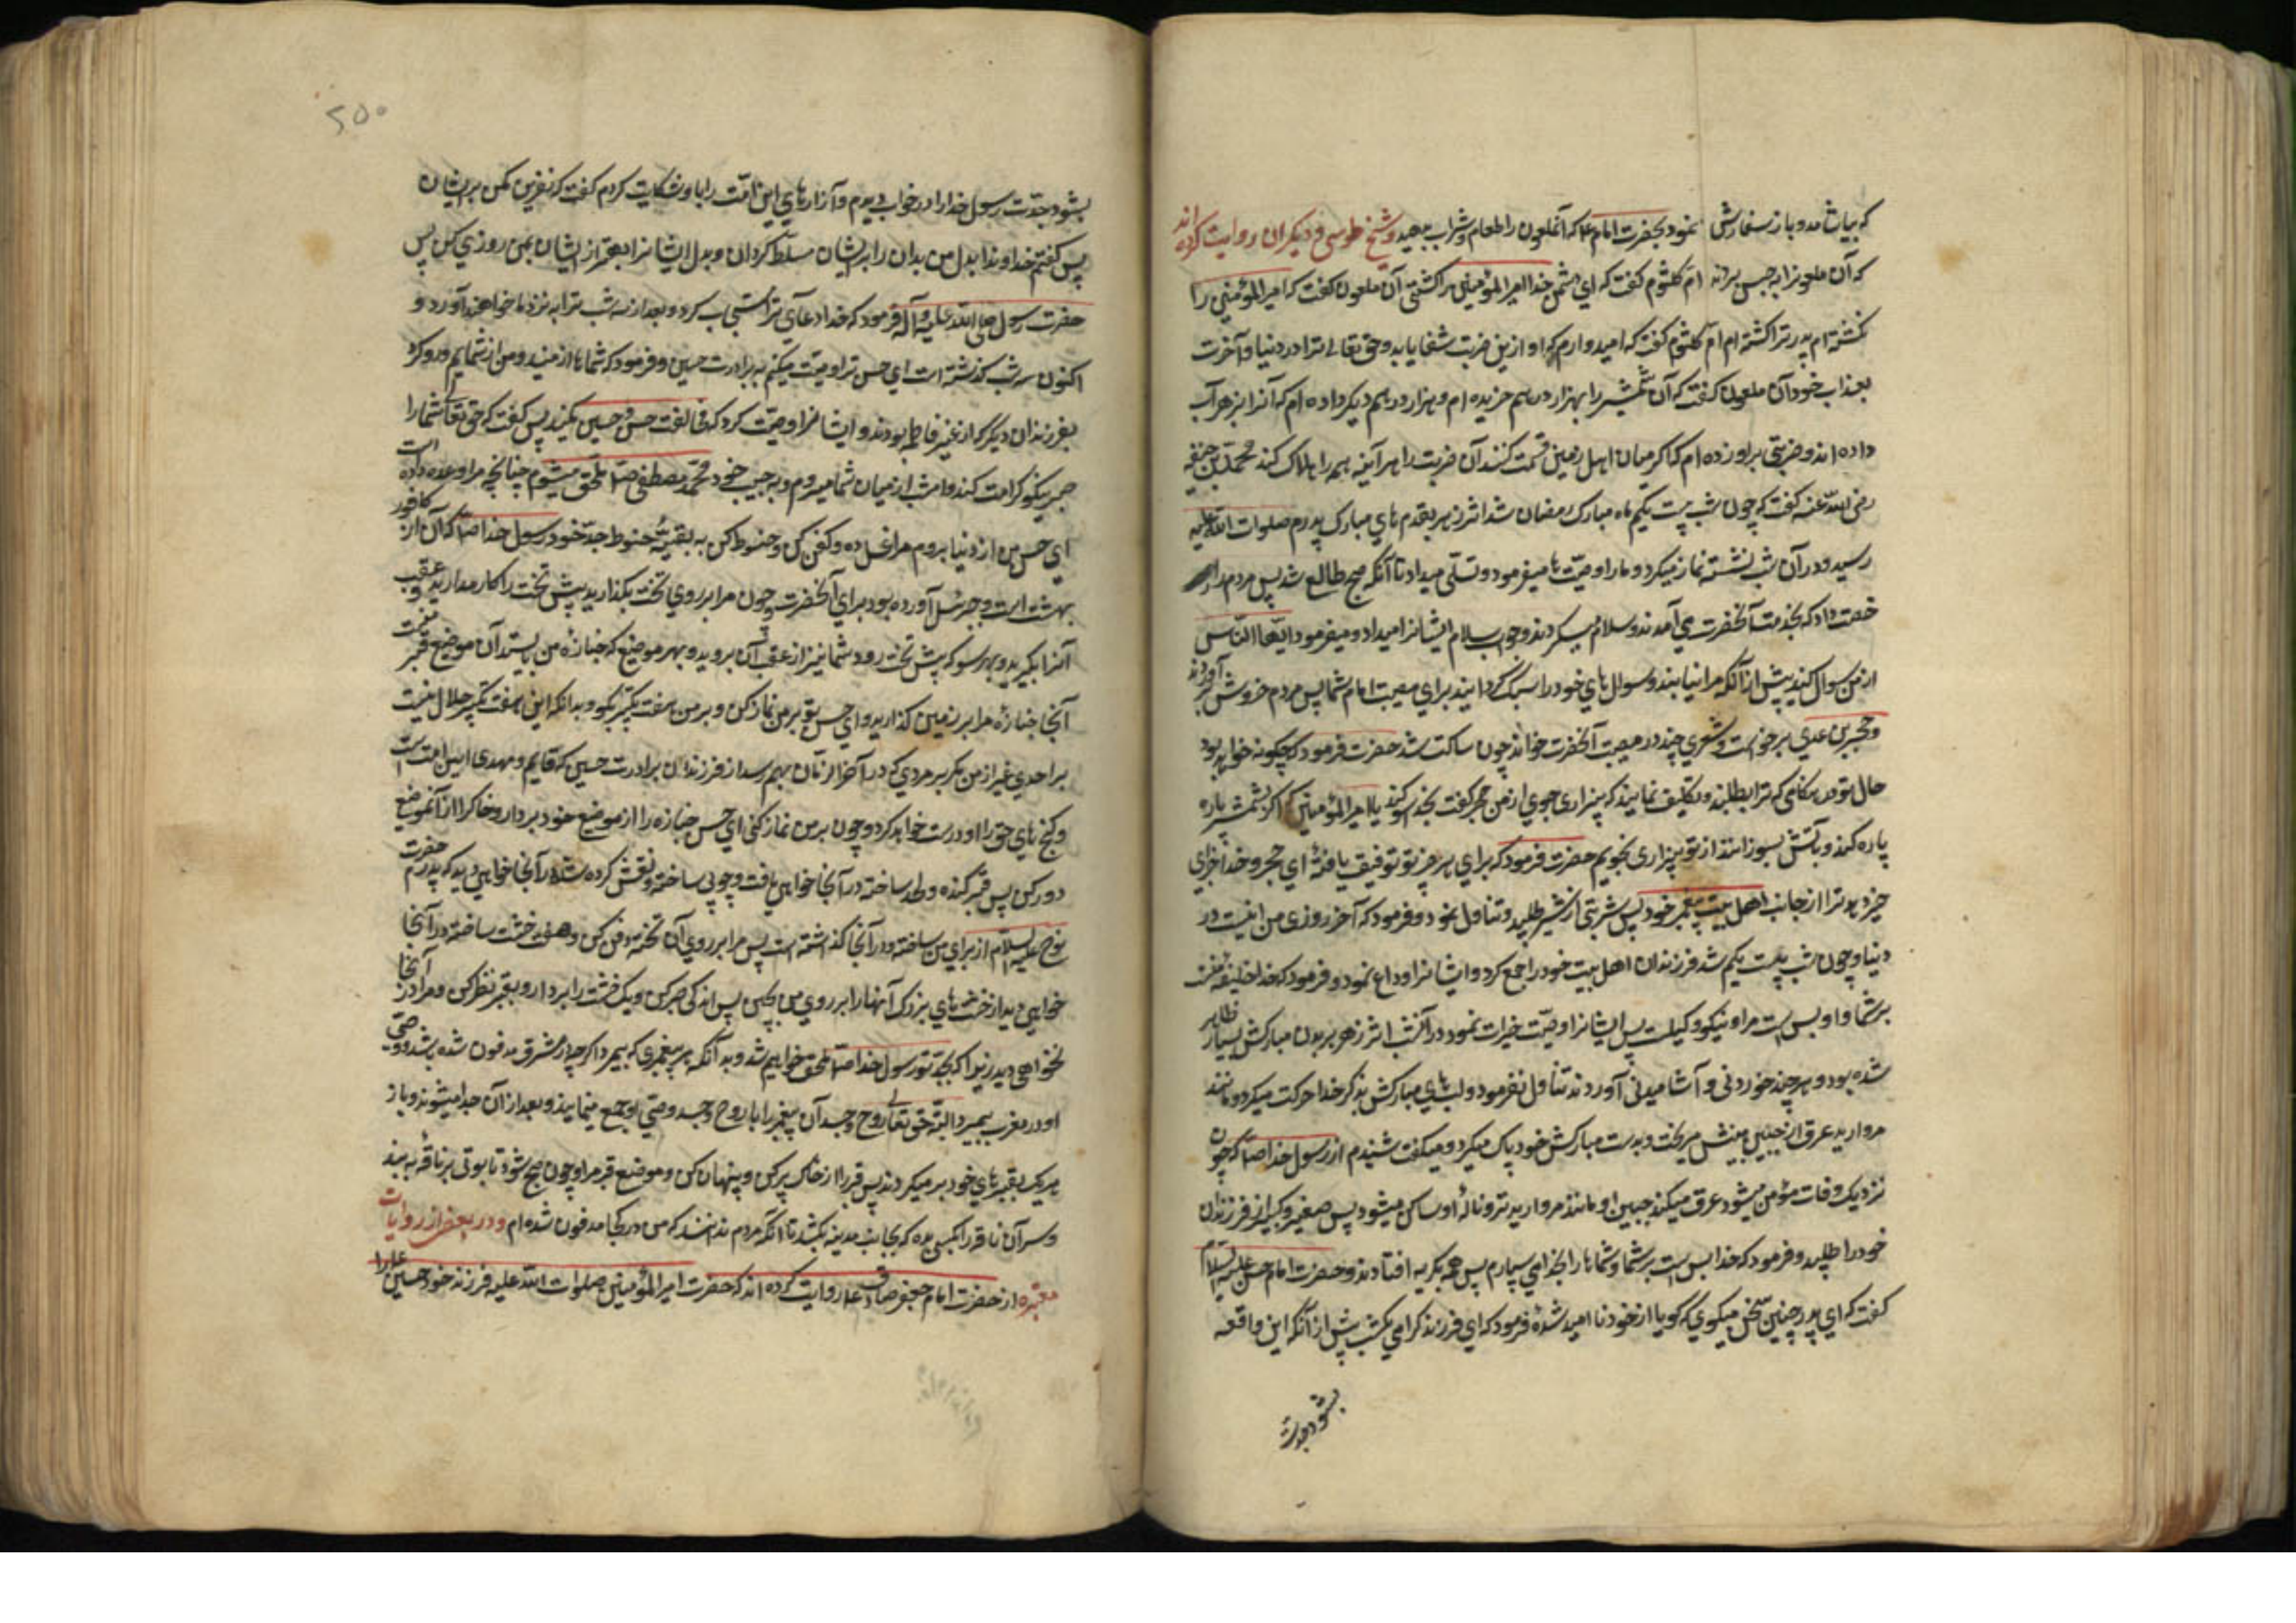 که بیاشامد و باز سفارش نمود بحضرت امام ع که آنملعون را طعام و شراب بدهید و شیخ طوسی و دیگران روایت کرده اند
که آن ملعونرا به حبس بردند ام کلثوم گفت که ای دشمن خدا امیرالمؤمنین را کشتی آن ملعون گفت که امیرالمؤمنین را
نکشته ام پدر ترا کشته ام ام کلثوم گفت که امیدوارم که او ازین ضربت شفا یابد و حق تعالی ترا در دنیا و آخرت
بعذاب خود آن ملعون گفت که آن شمشیر را بهزار درهم خریده ام و هزار درهم دیگر داده ام که آنرا بزهر آب
داده اند و ضربتی بر او زده ام که اگر میان اهل زمین قسمت کنند آن ضربت را هر آینه همه را هلاک کند محمد بن حنفیه
رضی الله عنه گفت که چون شب بیست یکم ماه مبارک رمضان شد اثر زهر بقدم های مبارک پدرم صلوات الله علیه
رسید و در آن شب نشسته نماز میکرد و ما را وصیت ها میفرمود و تسلی میداد تا آنکه صبح طالع شد پس مردم را
رخصت داد که بخدمت آنحضرت می آمدند و سلام میکردند و جواب سلام ایشانرا میداد و میفرمود ایها الناس
از من سوال کنید پیش از آنکه مرا نیابند و سوال های خود را سبک گردانید برای مصیبت امام شما پس مردم خروش بر آوردند
و حجر بن عدی برخواست و شعری چند در مصیبت آنحضرت خواند چون ساکت شد حضرت فرمود که چگونه خواهد بود
حال تو در هنگامی که ترا بطلبند و تکلیف نمایند که بیزاری جویی از من حجر گفت بخدا سوگند یا امیرالمؤمنین که اگر بشمشیر پاره
پاره کنند و بآتش بسوزانند از تو بیزاری نجویم حضرت فرمود که برای هر چیز تو توفیق یافتهٔ ای حجر و خدا جزای
خیر دهد ترا از جانب اهل بیت پیغمبر خود پس شربتی از شیر طلبید و تناول نمود و فرمود که آخر روزی من اینست در
دنیا و چون شب بیست یکم شد فرزندان اهل بیت خود را جمع کرد و ایشانرا وداع نمود و فرمود که خدا خلیفه منست
بر شما و او بس است مرا و نیکو وکیلست پس ایشانرا وصیت خیرات نمود در آنشب اثر زهر بر بدن مبارکش بسیار ظاهر
شده بود و هر چند خوردنی و آشامیدنی آوردند تناول نفرمود و لب های مبارکش بذکر خدا حرکت میکرد و مانند
مروارید عرق از جبین مبینش میریخت و بدست مبارکش خود پاک میکرد و میگفت شنیدم از رسول خدا ص که چون
نزدیک وفات مؤمن میشود عرق میکند جبین او مانند مروارید تر و نالهٔ او ساکن میشود پس صغیر و کبیر از فرزندان
خود را طلبید و فرمود که خدا بس است بر شما و شما را بخدا می سپارم پس همه بگریه افتادند و حضرت امام حسن علیه السلام
گفت که ای پدر چنین سخن میگوی که گویا از خود نا امید شدهٔ فرمود که ای فرزند گرامی یکشب پیش از آنکه این واقعه
بشود جدت
۲۵۰
بشود جدت رسول خدا را در خواب دیدم و آزارهای این امت را باو شکایت کردم گفت که نفرین کن بر ایشان
پس گفتم خداوندا بدل من بدان را بر ایشان مسلط گردان و بدل ایشانرا بهتر از ایشان بمن روزی کن پس
حضرت رسول صلی الله علیه و آله فرمود که خدا دعای ترا مستجاب کرد و بعد از سه شب ترا به نزد ما خواهند آورد و
اکنون سه شب گذشته است ای حسن ترا وصیت میکنم به برادرت حسین و فرمود که شماها از منید و من از شمایم و رو کرد
بفرزندان دیگر که از غیر فاطمه بودند و ایشانرا وصیت کرد که مخالفت حسن و حسین مکنید پس گفت که حق تعالی شما را
صبر نیکو کرامت کند و امشب از میان شما میروم و به حبیب خود محمد مصطفی ص ملحق میشوم چنانچه مرا وعده داده است
ای حسن من از دنیا بروم مرا غسل ده و کفن کن و حنوط کن به بقیهٔ حنوط جد خود رسول خدا ص که آن از کافور
بهشت است و جبرئیل آورده بود برای آنحضرت و چون مرا بر روی تخت بگذارید پیش تخت را کار مدارید و عقب
آنرا بگیرید و بهر سو که پیش تخت رود شما نیز از عقب آن بروید و بهر موضع که جنازه من بایستد آن موضع قبر منست
آنجا جنازه مرا بر زمین گذارید و ای حسن تو بر من نماز کن و بر من هفت تکبیر بگو و بدانکه این هفت تکبیر حلال نیست
بر احدی غیر از من مگر بر مردی که در آخر الزمان بهم رسد از فرزندان برادرت حسین که قایم و مهدی این امت است
و کجی های حق را او درست خواهد کرد و چون بر من نماز کنی ای حسن جنازه را از موضع خود بردار و خاک را از آنموضع
دور کن پس قبر کنده و لحد ساخته در آنجا خواهی یافت و چوبی ساخته و نقش کرده شده در آنجا خواهی دید که پدرم حضرت
نوح علیه السلام از برای من ساخته و در آنجا گذاشته است پس مرا بر روی آن تخته دفن کن و هفت خشت ساخته در آنجا
خواهی دید از خشت های بزرگ آنها را بر روی من بچین پس اندکی صبر کن و یک خشت را بردار و بقبر نظر کن و مرا در آنجا
نخواهی دید زیرا که بجد تو رسول خدا ص ملحق خواهم شد و بدانکه هر پیغمبری که بمیرد اگر چه در مشرق مدفون شده باشد و وصی
او در مغرب بمیرد البته حق تعالی روح و جسد آن پیغمبر را با روح و جسد وصی او جمع مینماید و بعد از آن جدا میشوند و باز
هر یک بقبرهای خود بر میگردند پس قبر را از خاک پر کن و پنهان کن و موضع قبر مرا و چون صبح شود تابوتی بر ناقهٔ به بند
و سر آن ناقه را بکسی بده که بجانب مدینه بکشد تا آنکه مردم ندانند که من در کجا مدفون شده ام و در بعضی از روایات
معتبره از حضرت امام جعفر صادق ع روایت کرده اند که حضرت امیرالمؤمنین صلوات الله علیه فرزند خود حسین ع را